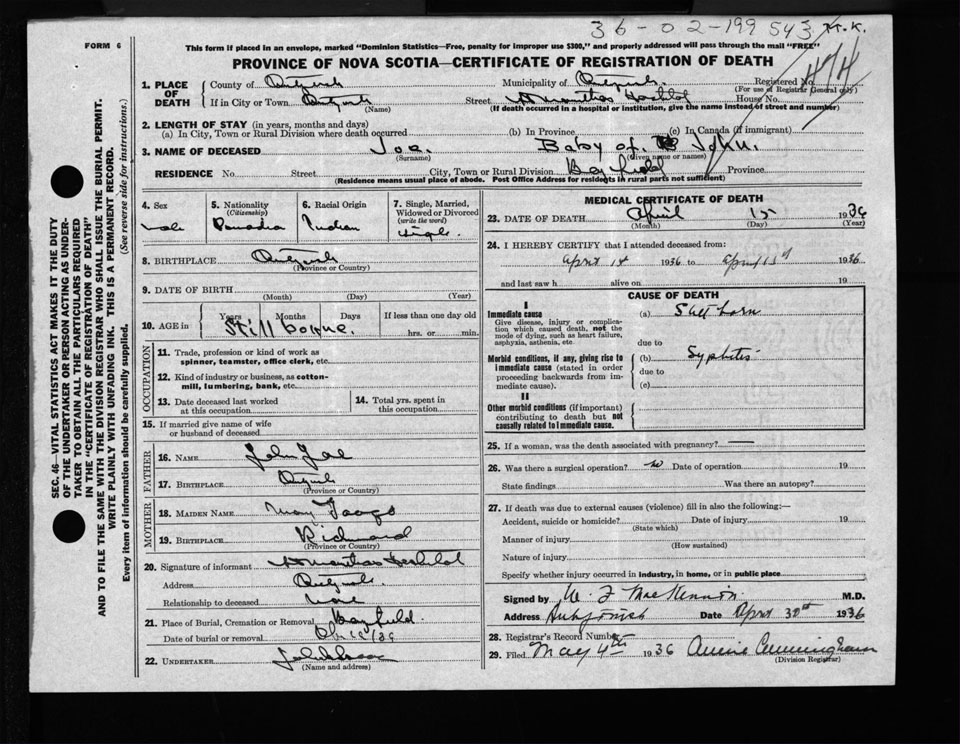 36-02-199543 H.K.
FORM 6
This form if placed in an envelope, marked "Dominion Statistics—Free, penalty for improper use $300," and properly addressed will pass through the mail "FREE"
PROVINCE OF NOVA SCOTIA—CERTIFICATE OF REGISTRATION OF DEATH
474
1. PLACE OF DEATH County of Municipality of Registered No.
(For use of Registrar General only)
If in City or Town (Name) Street House No.
(If death occurred in a hospital or institution, give the name instead of street and number)
2. LENGTH OF STAY (in years, months and days)
(a) In City, Town or Rural Division where death occurred (b) In Province (c) In Canada (if immigrant)
3. NAME OF DECEASED Joe. Baby of John.
(Surname) (Given name or names)
RESIDENCE No. Street City, Town or Rural Division Bayfield Province
(Residence means usual place of abode. Post Office Address for residents in rural parts not sufficient)
4. Sex
male
5. Nationality
(Citizenship)
Canadian
6. Racial Origin
Indian
7. Single, Married, Widowed or Divorced
(write the word)
single
8. BIRTHPLACE
(Province or Country)
9. DATE OF BIRTH
(Month) (Day) (Year)
10. AGE in Years Months Days If less than one day old
Still borne. hrs. or min.
OCCUPATION
11. Trade, profession or kind of work as spinner, teamster, office clerk, etc.
12. Kind of industry or business, as cotton-mill, lumbering, bank, etc.
13. Date deceased last worked at this occupation
14. Total yrs. spent in this occupation
15. If married give name of wife or husband of deceased
FATHER
16. NAME John Joe
17. BIRTHPLACE
(Province or Country)
MOTHER
18. MAIDEN NAME May
19. BIRTHPLACE Richmond
(Province or Country)
20. Signature of informant
Address
Relationship to deceased none
21. Place of Burial, Cremation or Removal Bayfield.
Date of burial or removal
22. UNDERTAKER
(Name and address)
MEDICAL CERTIFICATE OF DEATH
23. DATE OF DEATH April 15 1936
(Month) (Day) (Year)
24. I HEREBY CERTIFY that I attended deceased from:
April 14 1936 to April 15 1936
and last saw h alive on 19
CAUSE OF DEATH
I
Immediate cause
Give disease, injury or complication which caused death, not the mode of dying, such as heart failure, asphyxia, asthenia, etc.
(a) Still born
due to
Morbid conditions, if any, giving rise to immediate cause (stated in order proceeding backwards from immediate cause).
(b) Syphilis
due to
(c)
II
Other morbid conditions (if important) contributing to death but not causally related to immediate cause.
25. If a woman, was the death associated with pregnancy?
26. Was there a surgical operation? no Date of operation 19
State findings Was there an autopsy?
27. If death was due to external causes (violence) fill in also the following:—
Accident, suicide or homicide? Date of injury 19
(State which)
Manner of injury
(How sustained)
Nature of injury
Specify whether injury occurred in industry, in home, or in public place
Signed by W. F. MacKinnon M.D.
Address Antigonish Date April 30th 1936
28. Registrar's Record Number
29. Filed May 4th 1936 Annie Cunningham
(Division Registrar)
SEC. 46—VITAL STATISTICS ACT MAKES IT THE DUTY
OF THE UNDERTAKER OR PERSON ACTING AS UNDER-
TAKER TO OBTAIN ALL THE PARTICULARS REQUIRED
IN THE "CERTIFICATE OF REGISTRATION OF DEATH"
AND TO FILE THE SAME WITH THE DIVISION REGISTRAR WHO SHALL ISSUE THE BURIAL PERMIT.
WRITE PLAINLY WITH UNFADING INK. THIS IS A PERMANENT RECORD.
Every item of information should be carefully supplied. (See reverse side for instructions.)